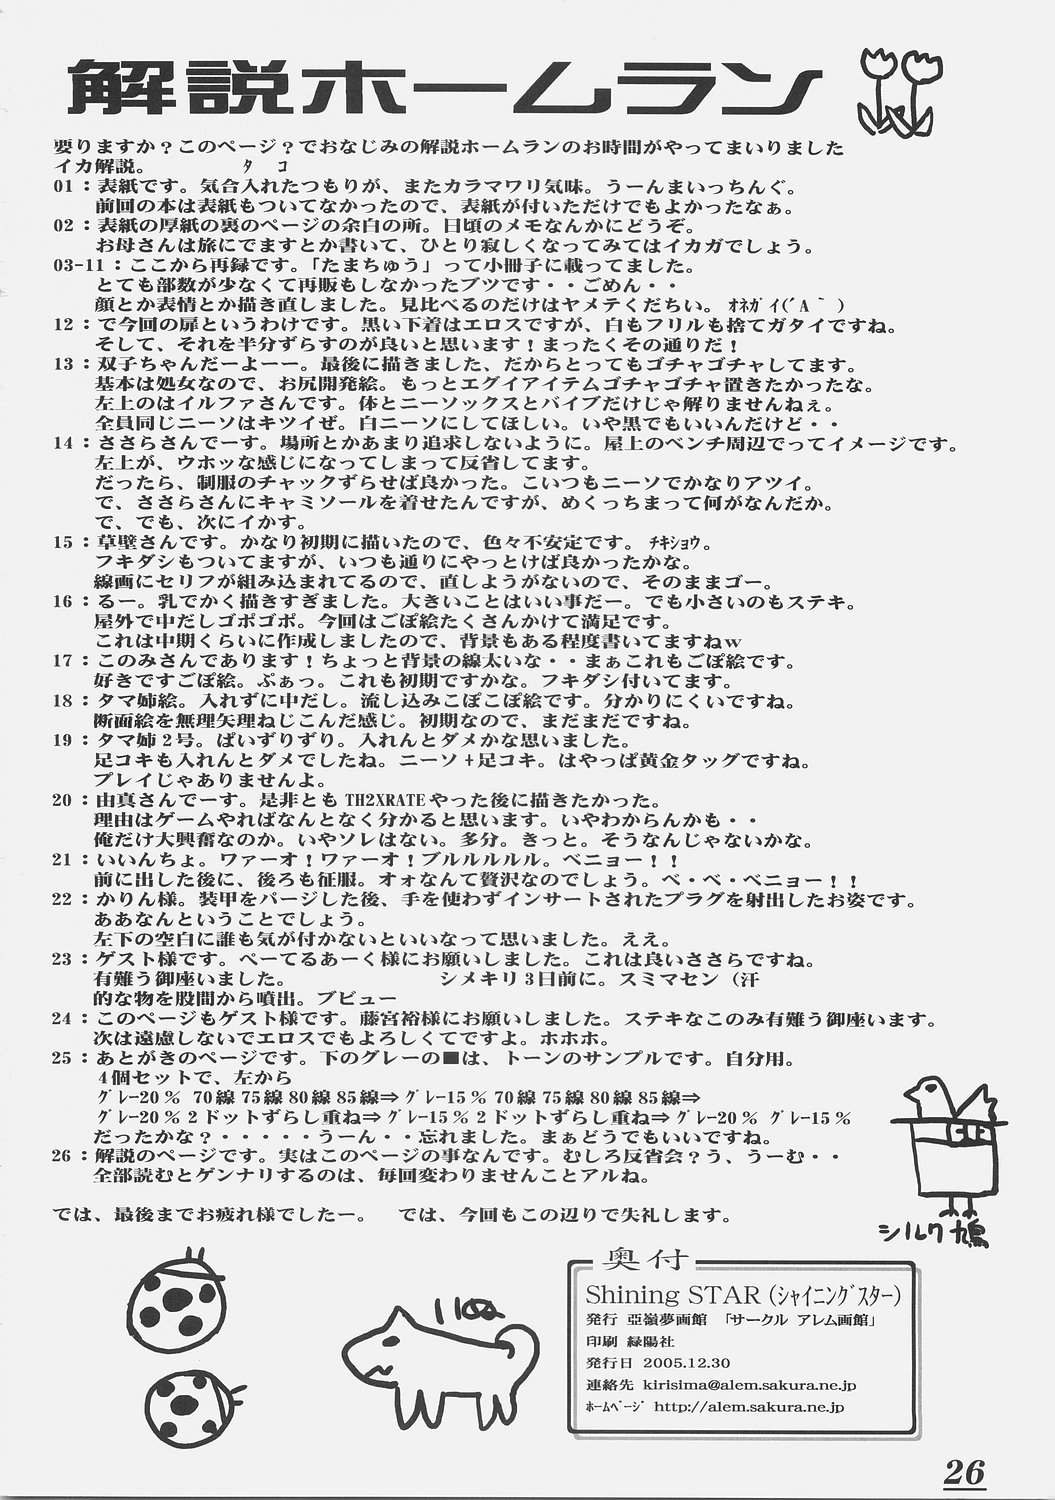 解説ホームラン
要りますか？このページ？でおなじみの解説ホームランのお時間がやってまいりました
イカ解説。　　　　ﾀ　ｺ
01：表紙です。気合入れたつもりが、またカラマワリ気味。うーんまいっちんぐ。
前回の本は表紙もついてなかったので、表紙が付いただけでもよかったなぁ。
02：表紙の厚紙の裏のページの余白の所。日頃のメモなんかにどうぞ。
お母さんは旅にでますとか書いて、ひとり寂しくなってみてはイカガでしょう。
03-11：ここから再録です。「たまちゅう」って小冊子に載ってました。
とても部数が少なくて再販もしなかったブツです・・ごめん・・
顔とか表情とか描き直しました。見比べるのだけはヤメテくだちい。 ｵﾈｶﾞｲ(´A｀)
12：で今回の扉というわけです。黒い下着はエロスですが、白もフリルも捨てガタイですね。
そして、それを半分ずらすのが良いと思います！まったくその通りだ！
13：双子ちゃんだーよーー。最後に描きました、だからとってもゴチャゴチャしてます。
基本は処女なので、お尻開発絵。もっとエグイアイテムゴチャゴチャ置きたかったな。
左上のはイルファさんです。体とニーソックスとバイブだけじゃ解りませんねぇ。
全員同じニーソはキツイぜ。白ニーソにしてほしい。いや黒でもいいんだけど・・
14：ささらさんでーす。場所とかあまり追求しないように。屋上のベンチ周辺でってイメージです。
左上が、ウホッな感じになってしまって反省してます。
だったら、制服のチャックずらせば良かった。こいつもニーソでかなりアツイ。
で、ささらさんにキャミソールを着せたんですが、めくっちまって何がなんだか。
で、でも、次にイかす。
15：草壁さんです。かなり初期に描いたので、色々不安定です。 ﾁｷｼｮｳ。
フキダシもついてますが、いつも通りにやっとけば良かったかな。
線画にセリフが組み込まれてるので、直しようがないので、そのままゴー。
16：るー。乳でかく描きすぎました。大きいことはいい事だー。でも小さいのもステキ。
屋外で中だしゴポゴポ。今回はごぽ絵たくさんかけて満足です。
これは中期くらいに作成しましたので、背景もある程度書いてますねｗ
17：このみさんであります！ちょっと背景の線太いな・・まぁこれもごぽ絵です。
好きですごぽ絵。ぷぁっ。これも初期ですかな。フキダシ付いてます。
18：タマ姉絵。入れずに中だし。流し込みこぽこぽ絵です。分かりにくいですね。
断面絵を無理矢理ねじこんだ感じ。初期なので、まだまだですね。
19：タマ姉2号。ぱいずりずり。入れんとダメかな思いました。
足コキも入れんとダメでしたね。ニーソ+足コキ。はやっぱ黄金タッグですね。
プレイじゃありませんよ。
20：由真さんでーす。是非ともTH2XRATEやった後に描きたかった。
理由はゲームやればなんとなく分かると思います。いやわからんかも・・
俺だけ大興奮なのか。いやソレはない。多分。きっと。そうなんじゃないかな。
21：いいんちょ。ワァーオ！ワァーオ！ブルルルルル。ベニョー！！
前に出した後に、後ろも征服。オォなんて贅沢なのでしょう。ベ・ベ・ベニョー！！
22：かりん様。装甲をパージした後、手を使わずインサートされたプラグを射出したお姿です。
ああなんということでしょう。
左下の空白に誰も気が付かないといいなって思いました。ええ。
23：ゲスト様です。ぺーてるあーく様にお願いしました。これは良いささらですね。
有難う御座いました。　　　　　　　シメキリ3日前に。スミマセン（汗
的な物を股間から噴出。ブビュー
24：このページもゲスト様です。藤宮裕様にお願いしました。ステキなこのみ有難う御座います。
次は遠慮しないでエロスでもよろしくてですよ。ホホホ。
25：あとがきのページです。下のグレーの■は、トーンのサンプルです。自分用。
4個セットで、左から
ｸﾞﾚｰ20％ 70線 75線 80線 85線⇒ｸﾞﾚｰ15％ 70線 75線 80線 85線⇒
ｸﾞﾚｰ20％2ドットずらし重ね⇒ｸﾞﾚｰ15％2ドットずらし重ね⇒ｸﾞﾚｰ20％ ｸﾞﾚｰ15％
だったかな？・・・・・うーん・・忘れました。まぁどうでもいいですね。
26：解説のページです。実はこのページの事なんです。むしろ反省会？う、うーむ・・
全部読むとゲンナリするのは、毎回変わりませんことアルね。
では、最後までお疲れ様でしたー。　では、今回もこの辺りで失礼します。
シルク鳩
奥付
Shining STAR（ｼｬｲﾆﾝｸﾞｽﾀｰ）
発行 亞嶺夢画館 「サークル アレム画館」
印刷 緑陽社
発行日 2005.12.30
連絡先 kirisima@alem.sakura.ne.jp
ﾎｰﾑﾍﾟｰｼﾞ http://alem.sakura.ne.jp
26